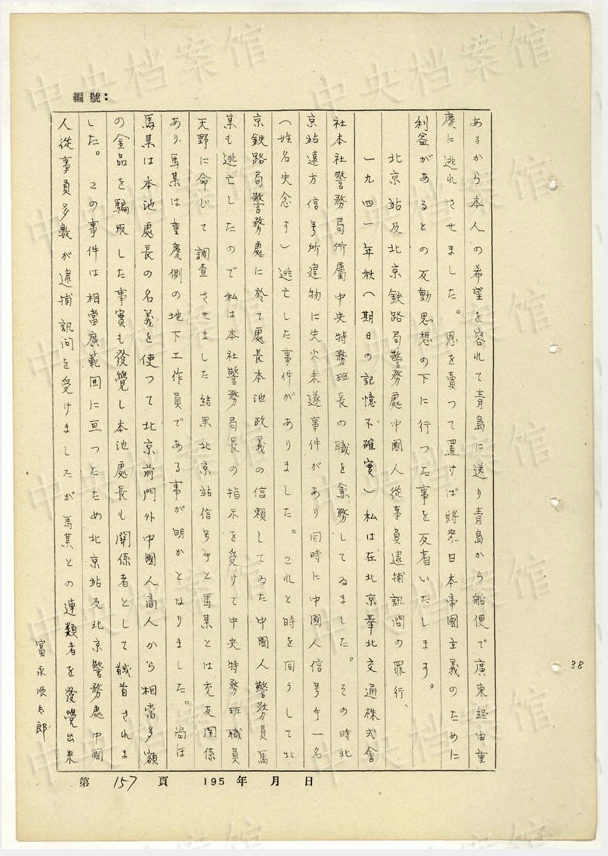 編號：
あるから本人の希望を容れて青島に送り青島から船便で廣東経由重
慶に逃れさせました。恩を賣つて置けば將来日本帝國主義のために
利益があるとの反動思想の下に行つた事を反省いたします。
北京站及北京鉄路局警務處中國人從事員逮捕訊問の罪行、
一九四一年秋（期日の記憶不確実）私は在北京華北交通株式會
社本社警務局所屬中央特務班長の職を兼務してゐました。その時北
京站遠方信号所建物に失火未遂事件があり同時に中國人信号手一名
（姓名失念す）逃亡した事件がありました。これと時を同うして北
京鉄路局警務處に於て處長本池政義の信頼してゐた中國人警務員馬
某も逃亡したので私は本社警務局長の指示を受けて中央特務班職員
天野に命じて調査させました結果北京站信号手と馬某とは交友関係
あり、馬某は重慶側の地下工作員である事が明かとなりました。尚ほ
馬某は本池處長の名義を使つて北京前門外中國人商人から相当多額
の金品を騙取した事実も發覺し本池處長も関係者として馘首されま
した。この事件は相當廣範囲に亘つたため北京站及北京警務處中國
人從事員多数が逮捕訊問を受けましたが馬某との連類者を發覺出来
富永順太郎
38
第 157 頁 195 年 月 日
中央档案馆